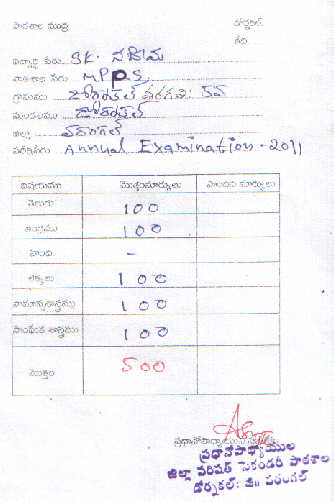 పాఠశాల ముద్ర
తేది
విద్యార్థి పేరు SK. నజీమ
పాఠశాల పేరు MPPS
గ్రామము
మండలము డోర్నకల్
జిల్లా వరంగల్
పరీక్షపేరు Annual Examination - 2011
విషయము మొత్తంమార్కులు పొందిన మార్కులు
తెలుగు 100
ఆంగ్లము 100
హింది -
లెక్కలు 100
సామాన్యశాస్త్రము 100
సాంఘిక శాస్త్రము 100
మొత్తం 500
ప్రధానోపాధ్యాయుల
జిల్లా పరిషత్ సెకండరీ పాఠశాల
డోర్నకల్: జి॥ వరంగల్